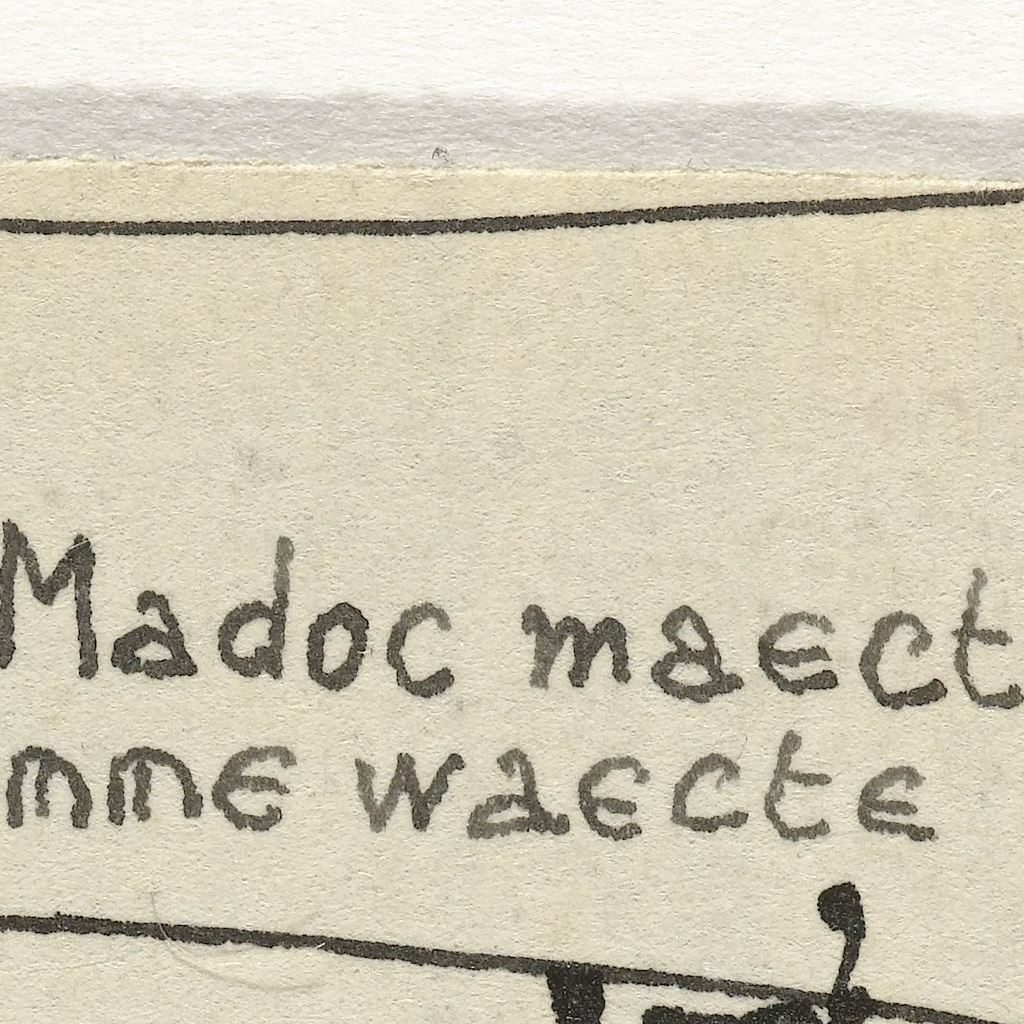 Madoc maect
mme waecte